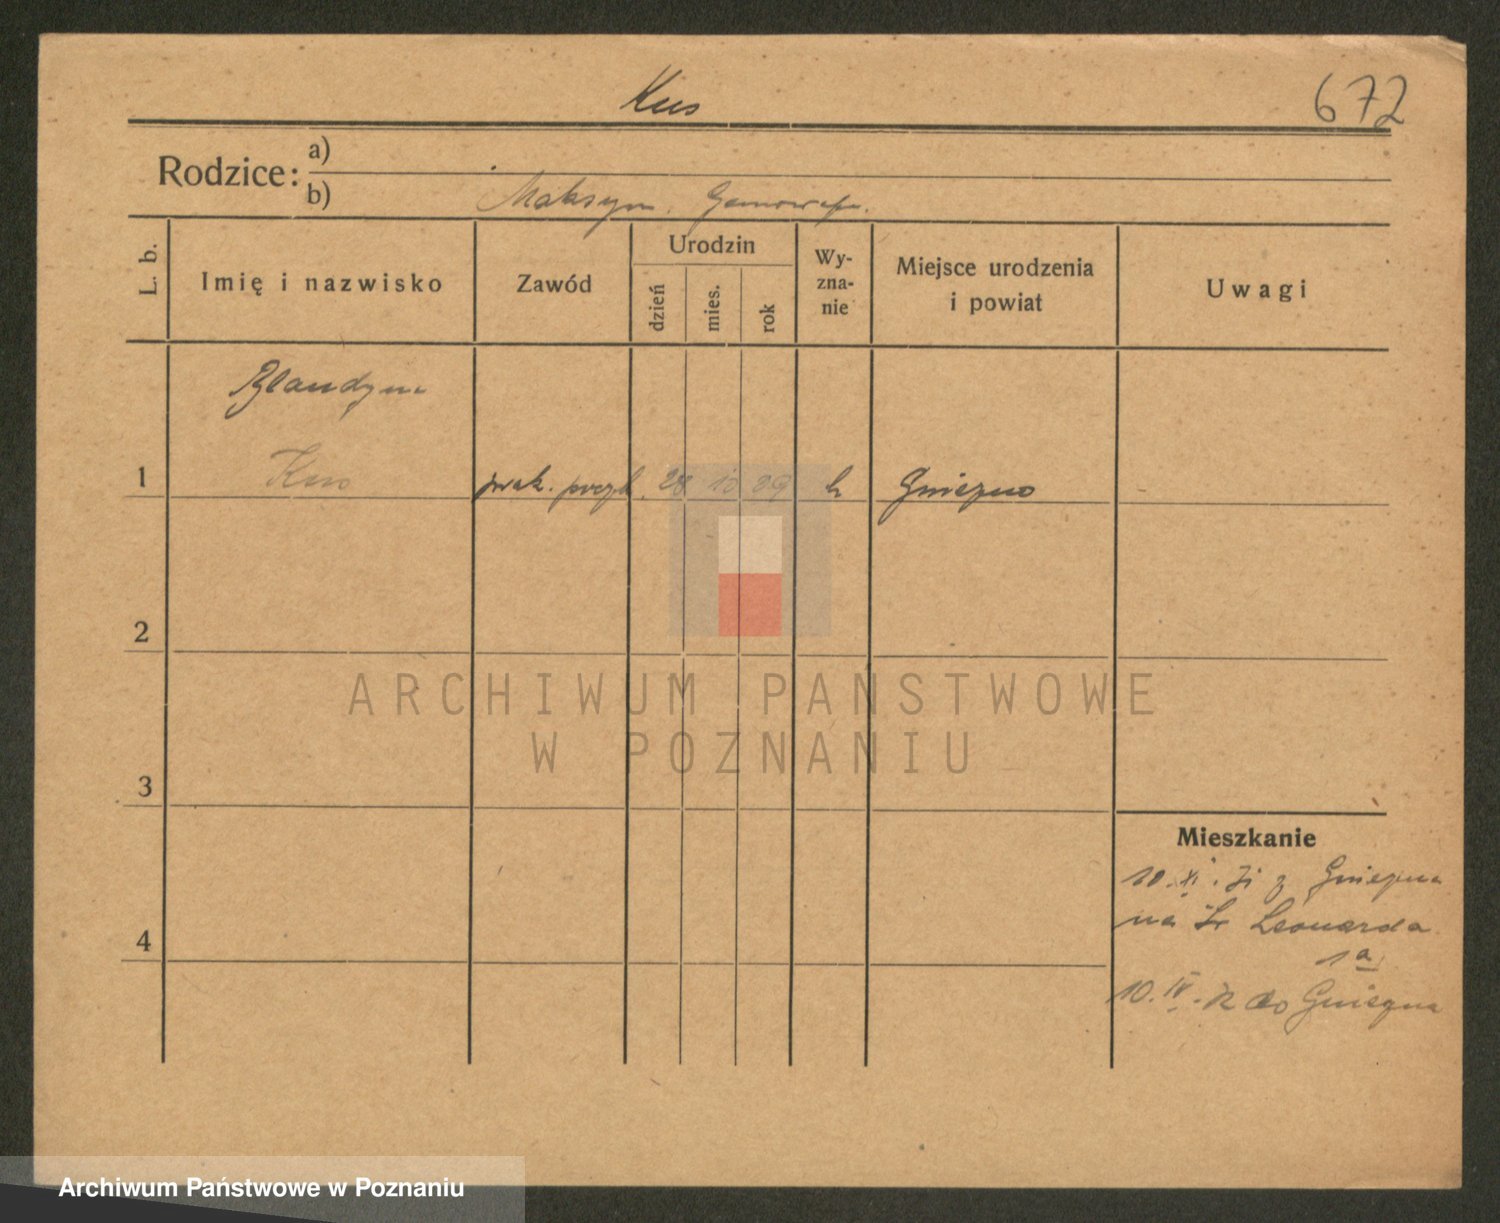 Kus
672
Rodzice:
a)
b) Maksym. Genowefa.
L. b.
Imię i nazwisko
Zawód
Urodzin
dzień
mies.
rok
Wy-
zna-
nie
Miejsce urodzenia
i powiat
Uwagi
Blandyna
1 Kus prak. 28 10 89 k Gniezno
2
3
4
Mieszkanie
10. XI. z Gniezna
na Św Leonarda
1a
10. IV. do Gniezna
ARCHIWUM PAŃSTWOWE
W POZNANIU
Archiwum Państwowe w Poznaniu